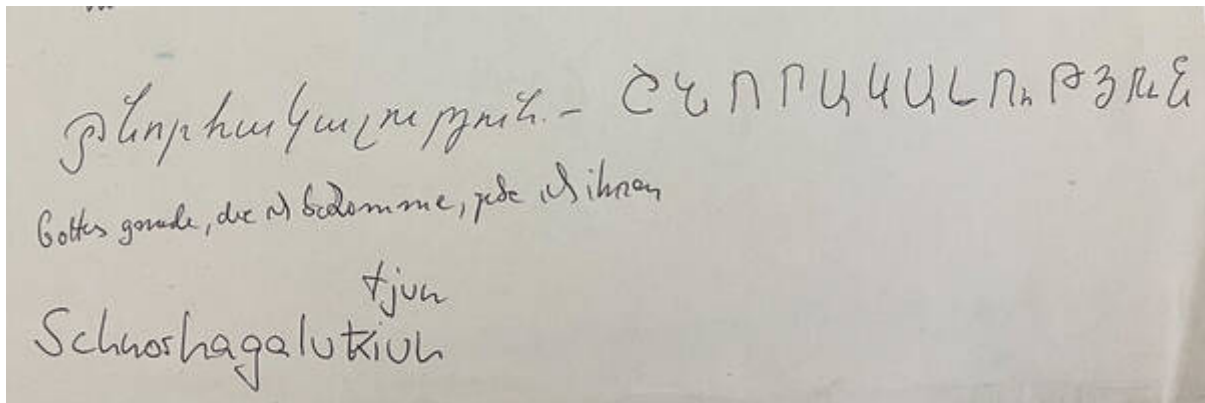 շնորհակալություն. - ՇՆՈՐԱԿԱԼՈւԹՅՈւՆ
Gottes gnade, die ich bekomme, gebe ich ihnen
tjun
Schnorhagalutiun